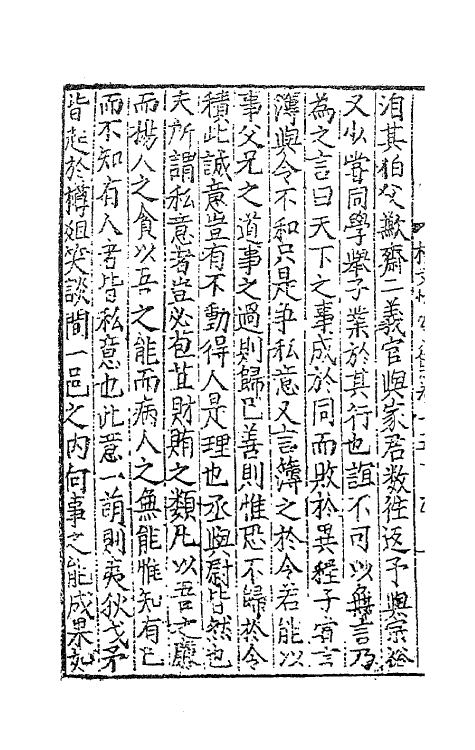 洎其伯父歉齋二義官與家君数往返予與宗裕
又少嘗同學舉子業於其行也誼不可以無言乃
為之言曰天下之事成於同而敗於異程子有言
簿與令不和只是争私意又言簿之於令若能以
事父兄之道事之過則歸巳善則惟恐不歸於令
積此誠意豈有不動得人是理也丞與尉皆然也
夫所謂私意者豈必苞苴財賄之類凡以吾之廉
而揚人之貪以吾之能而病人之無能惟知有巳
而不知有人者皆私意也此意一萌則夷狄戈矛
皆起於樽俎笑談間一邑之内何事之能成果如